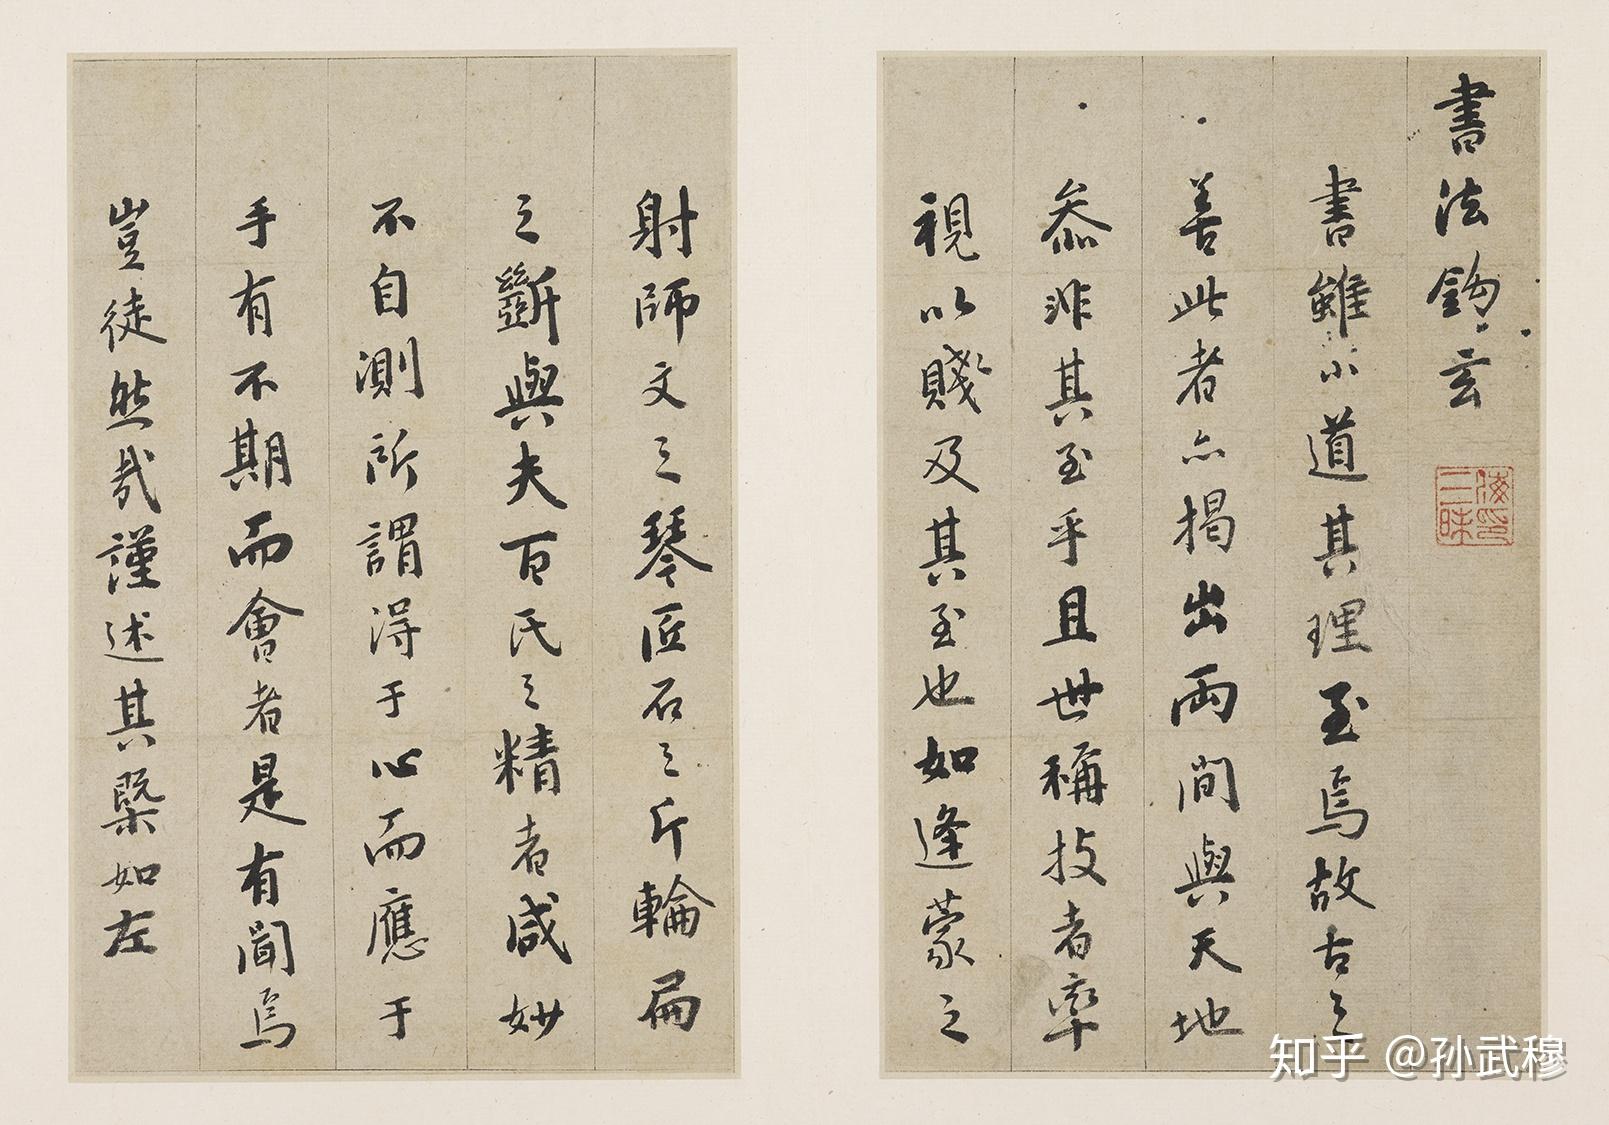 書法鉤玄
書雖小道其理至焉故古之
善此者亦揭出兩間與天地
叅非其至乎且世稱技者率
視以賤及其至也如逢蒙之
射師文之琴匠石之斤輪扁
之斲與夫百氏之精者咸妙
不自測所謂得于心而應于
手有不期而會者是有聞焉
豈徒然哉謹述其槩如左
知乎 @孙武穆